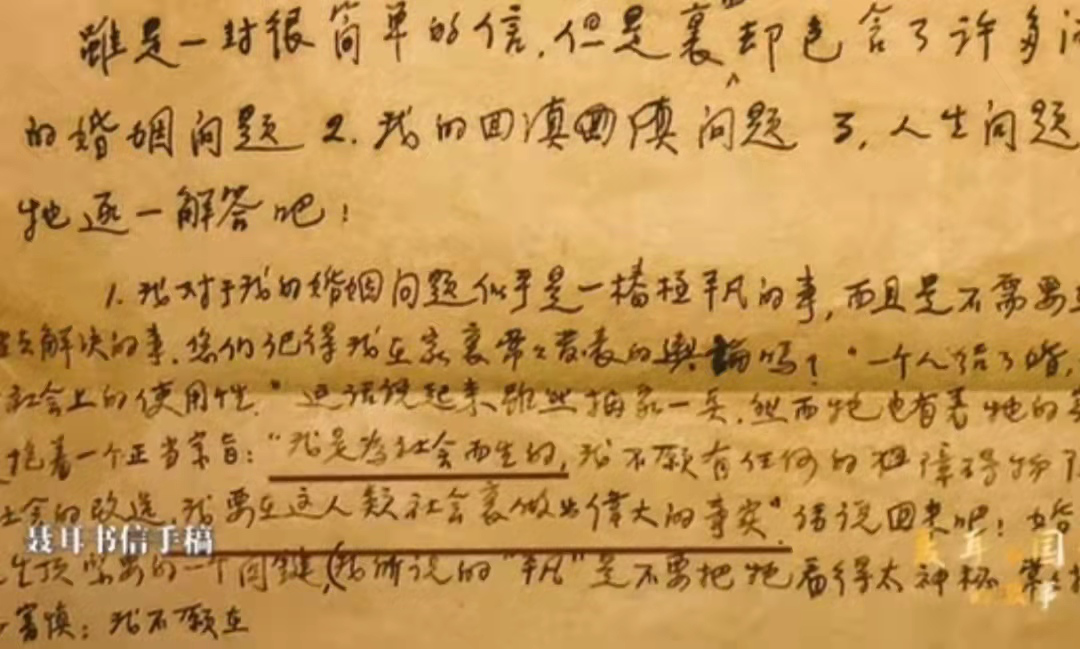 雖是一封很简单的信，但是裏面却包含了许多
的婚姻问题 2. 我的回滇问题 3, 人生问题
地逐一解答吧！
1. 我对于我的婚姻问题似乎是一樁極平凡的事，而且是不需要
解决的事。您们记得我在家裏常々发表的輿論吗？“一个人结了婚，
社会上的使用性。”这话说起来虽然抽象一点，然而牠也有着牠的
抱着一个正当宗旨：“我是為社会而生的，我不願有任何的阻障碍物
社会的改造，我要在这人類社会裏做出偉大的事实”。话说回来吧！婚
生顶紧要的一个问题，(我所说的“平凡”是不要把牠看得太神秘
審慎：我不願在
聂耳书信手稿
聂耳
国